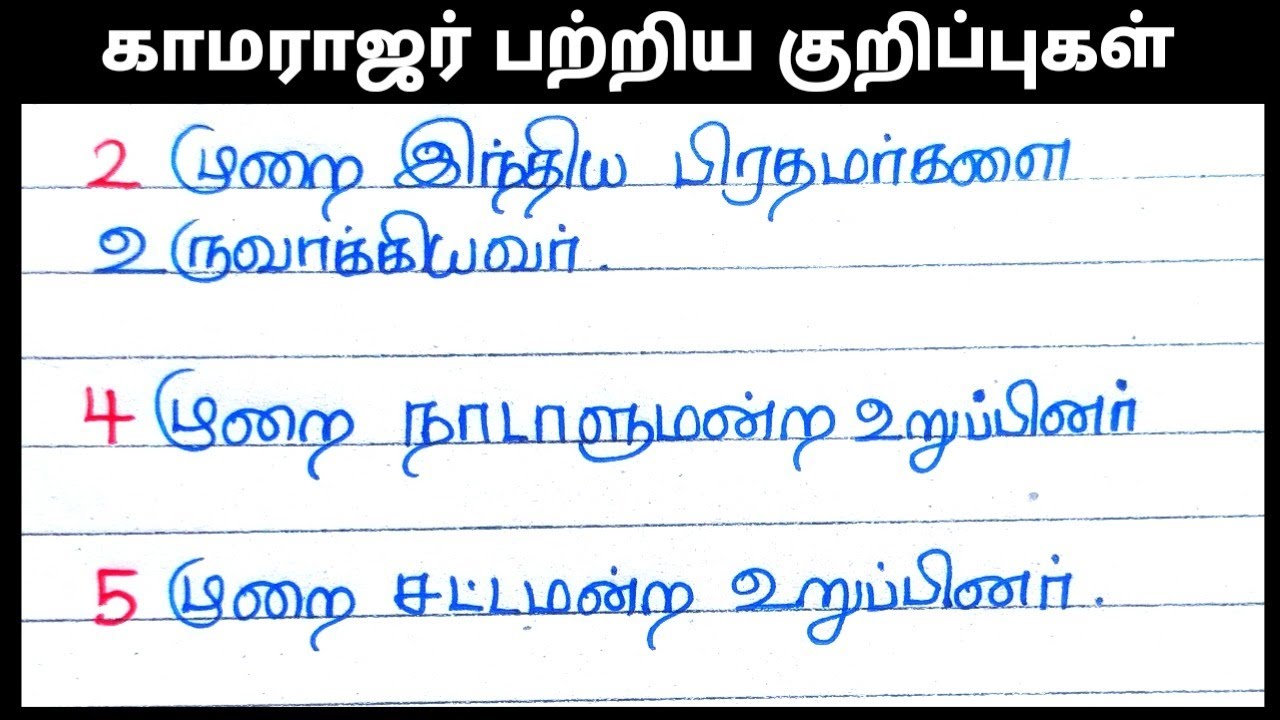 காமராஜர் பற்றிய குறிப்புகள்
2 முறை இந்திய பிரதமர்களை
உருவாக்கியவர்.
4 முறை நாடாளுமன்ற உறுப்பினர்
5 முறை சட்டமன்ற உறுப்பினர்.